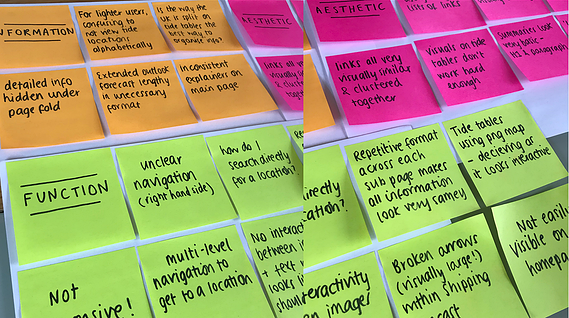 INFORMATION
For lighter users,
confusing to
not view tide
locations
alphabetically
Is the way the
UK is split on
tide tables the
best way to
organise info?
AESTHETIC
detailed info
hidden under
page fold
Extended outlook
forecast lengthy
in unecessary
format
inconsistent
explainers on
main page
links all very
visually similar
& clustered
together
FUNCTION
unclear
navigation
(right hand side)
how do I
search directly
for a location?
Not
multi-level
navigation to
get to a location
No
between
+ text
looks
AESTHETIC
of links
links all very
visually similar
& clustered
together
Visuals on tide
tables don't
work hard
enough
Summaries look
very basic -
paragraph
directly
cation?
Repetitive format
across each
sub page makes
all information
look very samey
Tide tables
using png map
- decieving as
it looks interactive
Broken arrows
(visually large!)
within shipping
Not easily
visible on
homepa